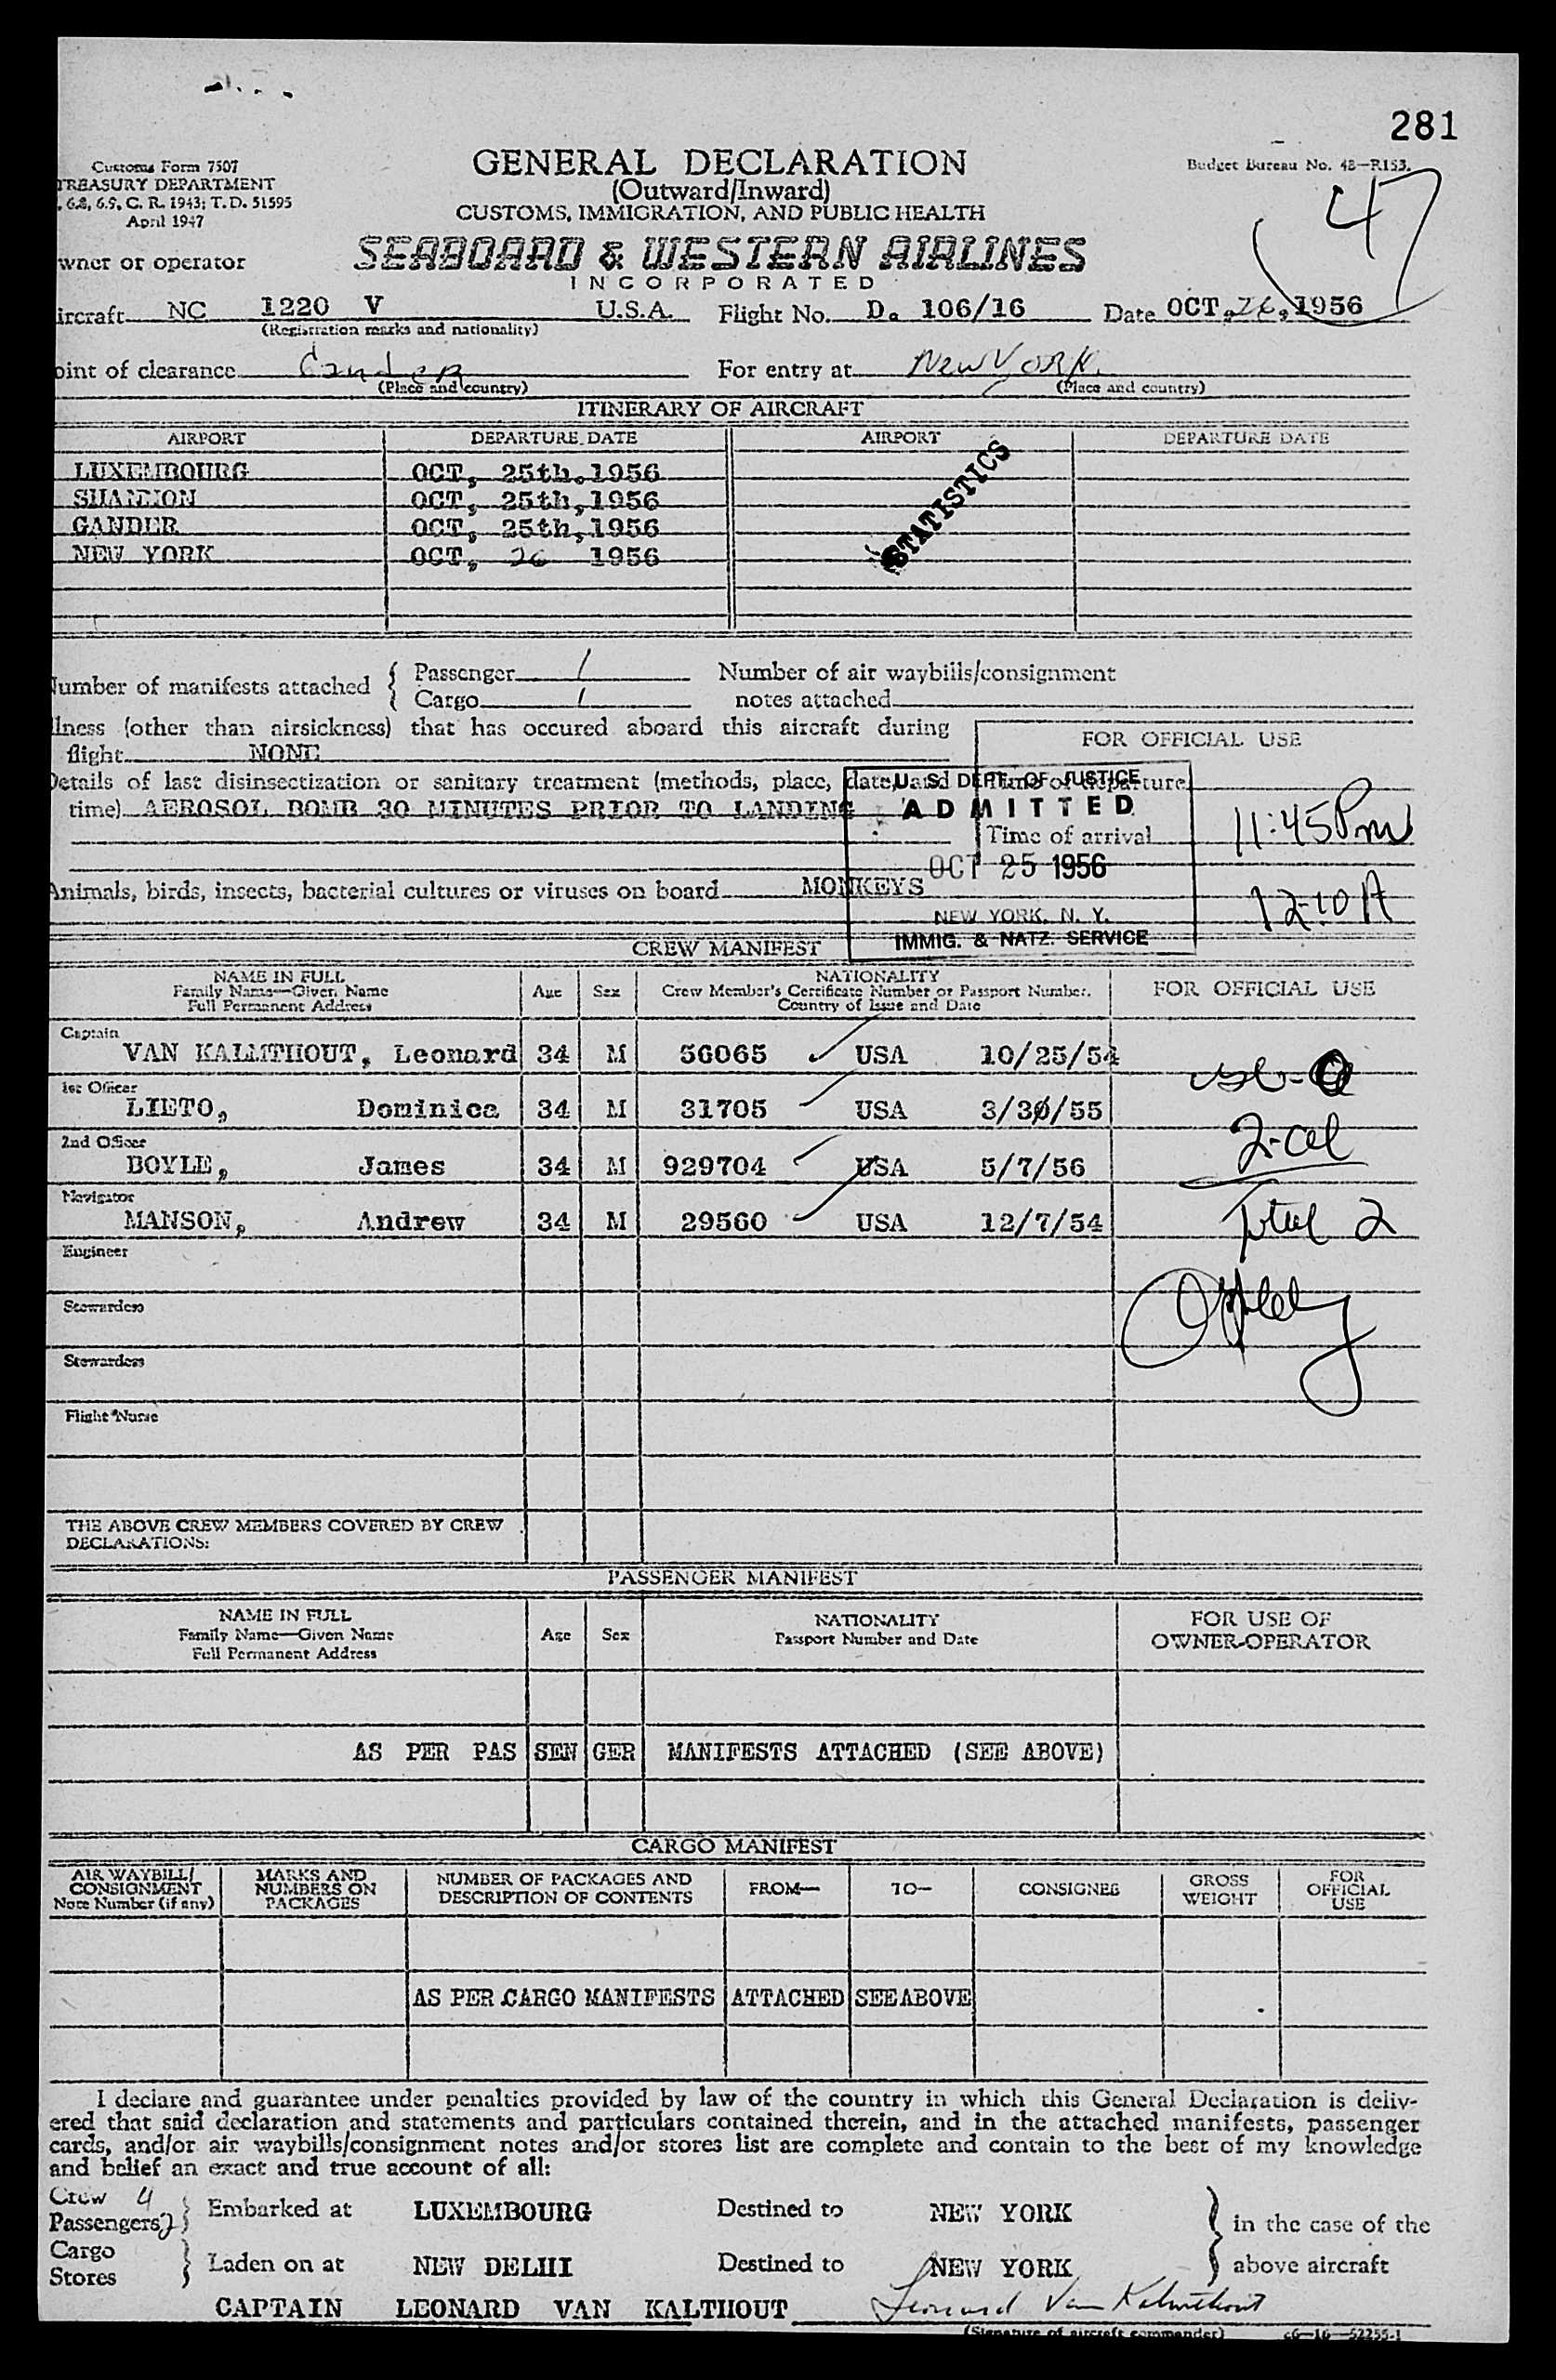 281
Customs Form 7507
TREASURY DEPARTMENT
6.8, 6.9, C. R. 1943; T. D. 51595
April 1947
GENERAL DECLARATION
(Outward/Inward)
CUSTOMS, IMMIGRATION, AND PUBLIC HEALTH
Budget Bureau No. 48—R153.
47
wner or operator
SEABOARD & WESTERN AIRLINES
INCORPORATED
ircraft NC 1220 V U.S.A. Flight No. D. 106/16 Date OCT, 26, 1956
(Registration marks and nationality)
oint of clearance Gander For entry at New York
(Place and country) (Place and country)
ITINERARY OF AIRCRAFT
AIRPORT DEPARTURE DATE AIRPORT DEPARTURE DATE
LUXEMBOURG OCT, 25th, 1956
SHANNON OCT, 25th, 1956
GANDER OCT, 25th, 1956
NEW YORK OCT, 26 1956
STATISTICS
Number of manifests attached { Passenger 1 Number of air waybills/consignment
Cargo 1 notes attached
llness (other than airsickness) that has occured aboard this aircraft during
flight NONE
FOR OFFICIAL USE
Details of last disinsectization or sanitary treatment (methods, place, date, and
time) AEROSOL BOMB 30 MINUTES PRIOR TO LANDING
Time of departure
Time of arrival
11:45 Pm
12:10 A
U. S. DEPT. OF JUSTICE
ADMITTED
OCT 25 1956
NEW YORK, N. Y.
IMMIG. & NATZ. SERVICE
Animals, birds, insects, bacterial cultures or viruses on board MONKEYS
CREW MANIFEST
NAME IN FULL
Family Name—Given Name
Full Permanent Address
Age Sex
NATIONALITY
Crew Member's Certificate Number or Passport Number.
Country of Issue and Date
FOR OFFICIAL USE
Captain
VAN KALMTHOUT, Leonard 34 M 56065 USA 10/25/54
1st Officer
LIETO, Dominica 34 M 31705 USA 3/30/55
2nd Officer
BOYLE, James 34 M 929704 USA 5/7/56
Navigator
MANSON, Andrew 34 M 29560 USA 12/7/54
Total 2
Engineer
Stewardess
Stewardess
Flight Nurse
THE ABOVE CREW MEMBERS COVERED BY CREW
DECLARATIONS:
PASSENGER MANIFEST
NAME IN FULL
Family Name—Given Name
Full Permanent Address
Age Sex
NATIONALITY
Passport Number and Date
FOR USE OF
OWNER-OPERATOR
AS PER PAS SEN GER MANIFESTS ATTACHED (SEE ABOVE)
CARGO MANIFEST
AIR WAYBILL/
CONSIGNMENT
Note Number (if any)
MARKS AND
NUMBERS ON
PACKAGES
NUMBER OF PACKAGES AND
DESCRIPTION OF CONTENTS
FROM— TO— CONSIGNEE
GROSS
WEIGHT
FOR
OFFICIAL
USE
AS PER CARGO MANIFESTS ATTACHED SEE ABOVE
I declare and guarantee under penalties provided by law of the country in which this General Declaration is deliv-
ered that said declaration and statements and particulars contained therein, and in the attached manifests, passenger
cards, and/or air waybills/consignment notes and/or stores list are complete and contain to the best of my knowledge
and belief an exact and true account of all:
Crew 4
Passengers 2 } Embarked at LUXEMBOURG Destined to NEW YORK } in the case of the
Cargo
Stores } Laden on at NEW DELHI Destined to NEW YORK above aircraft
CAPTAIN LEONARD VAN KALTHOUT Leonard Van Kalmthout
(Signature of aircraft commander) c6—16—52255-1